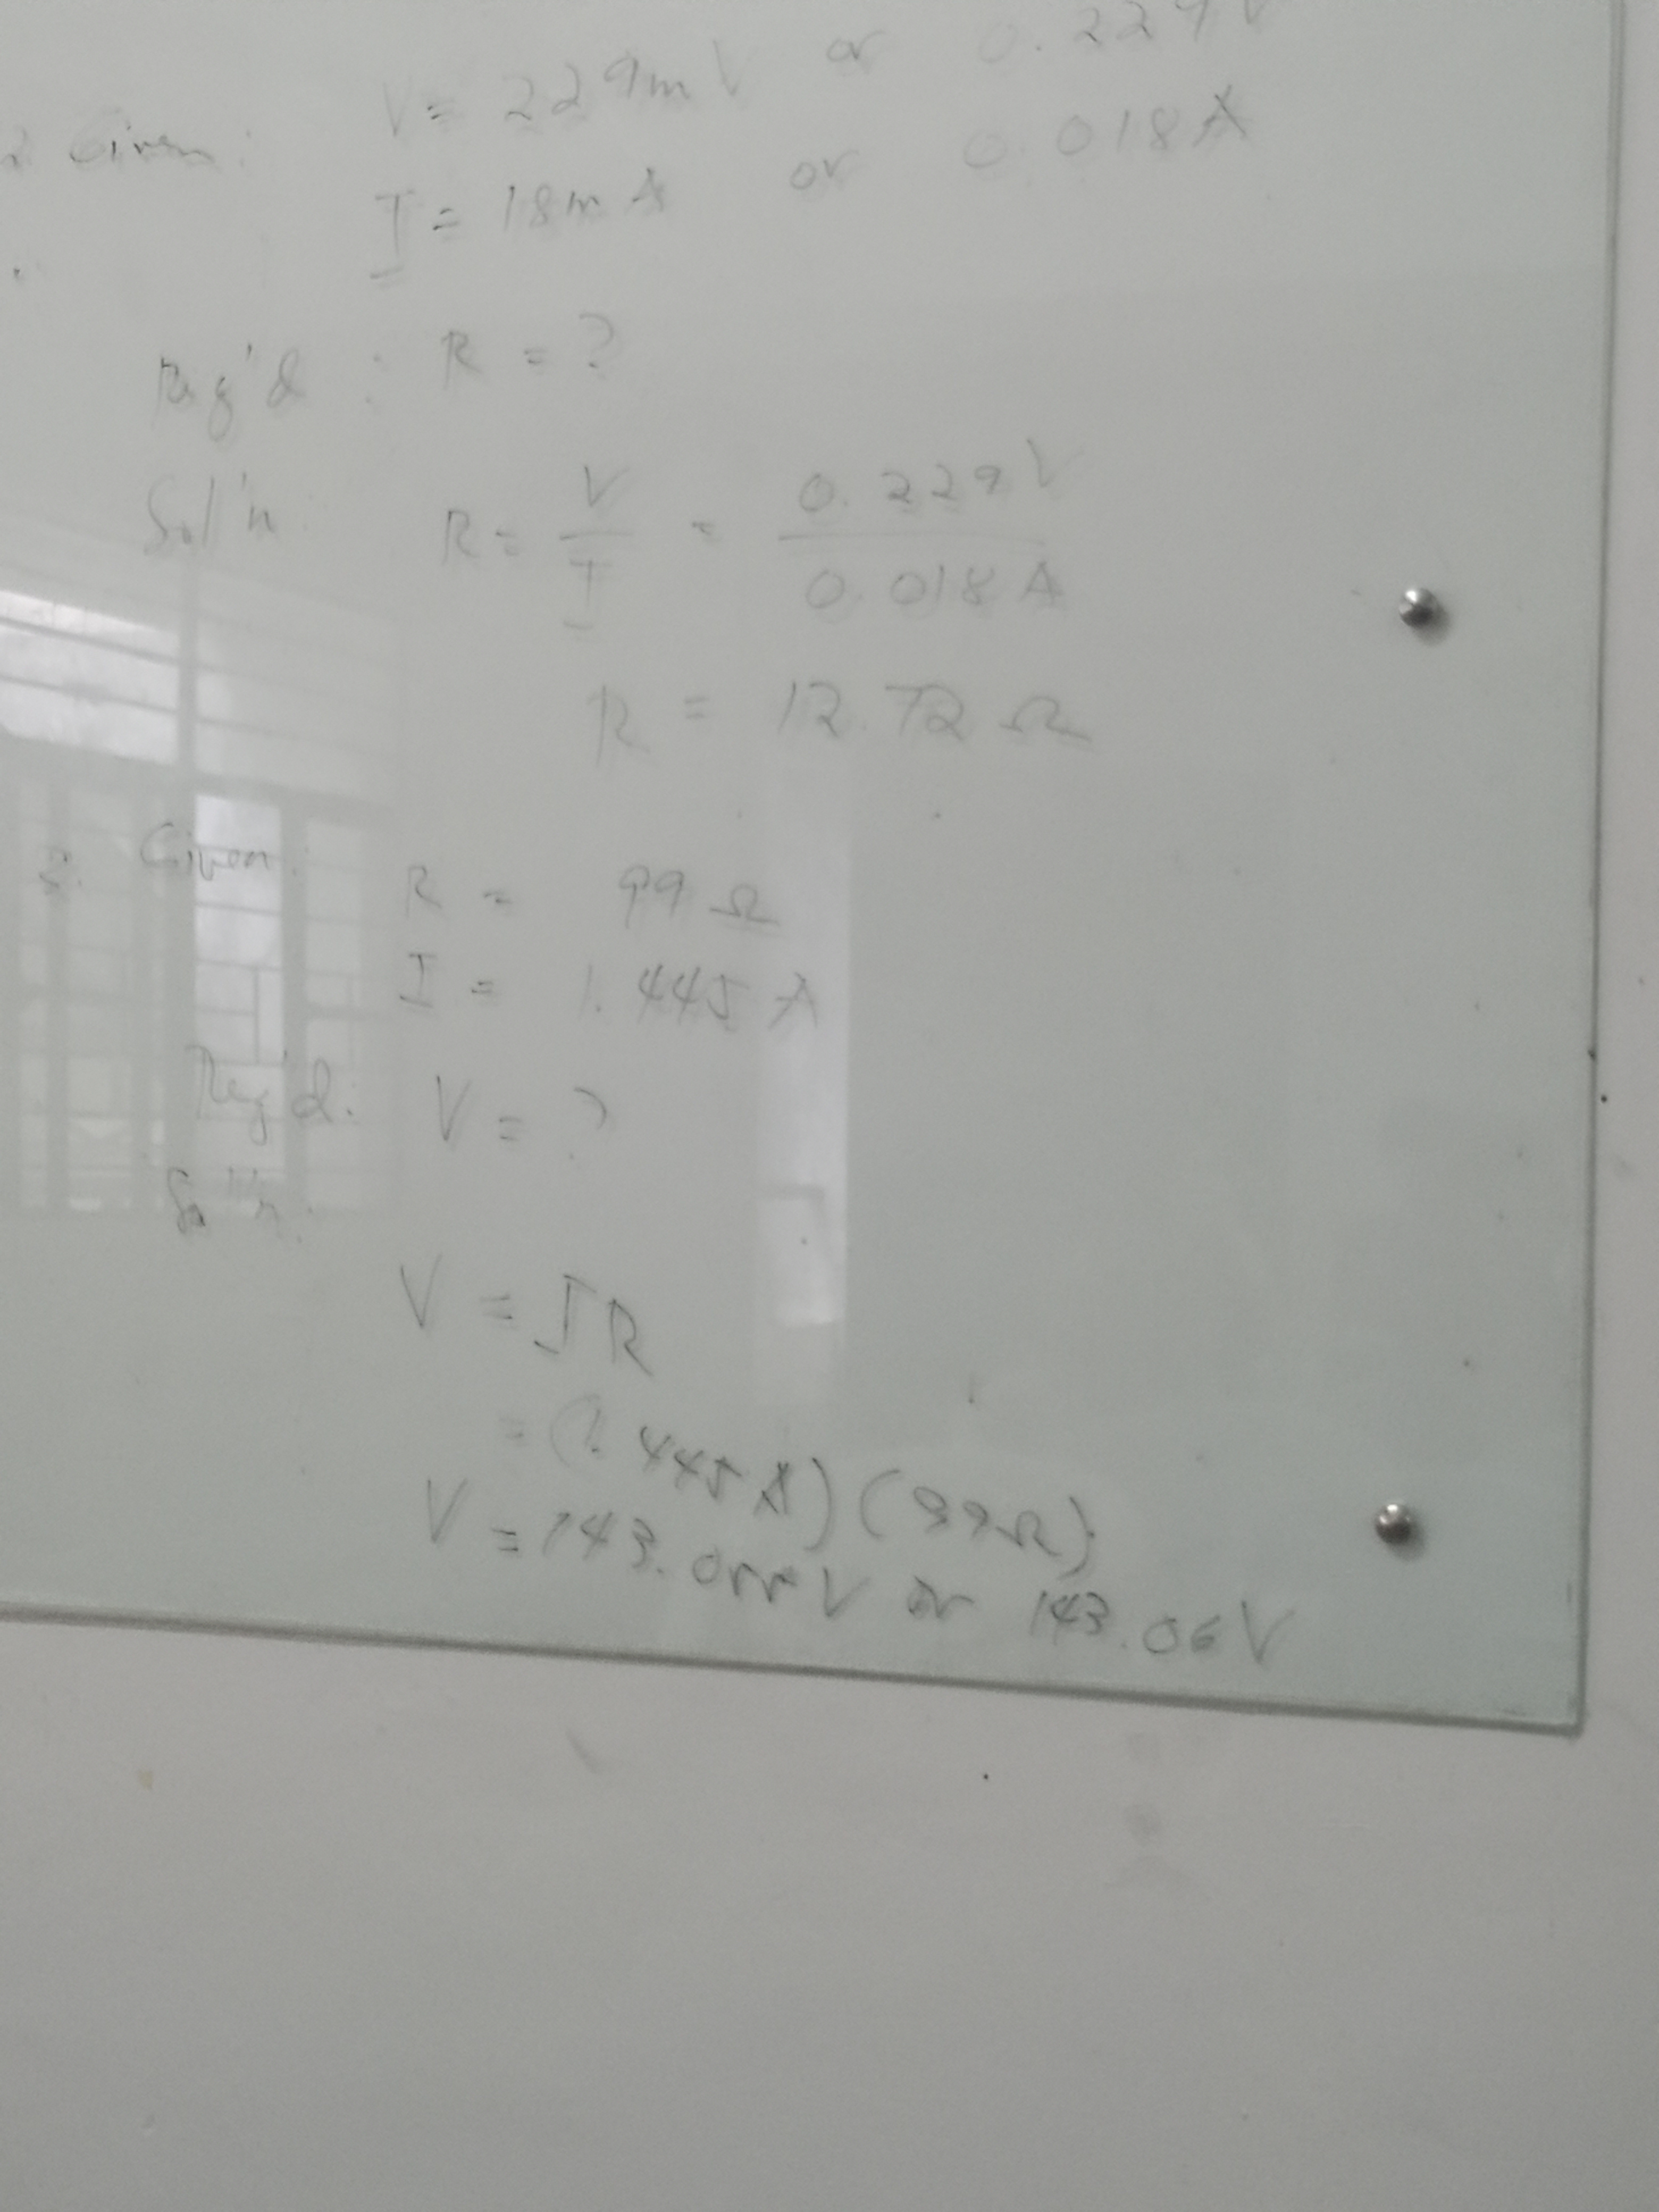 V = 229mV or 0.229V
2. Given:
I = 18mA or 0.018A
Req'd : R = ?
Sol'n R = V/I = 0.229V/0.018A
R = 12.72 Ω
3. Given:
R = 99 Ω
I = 1.445 A
Req'd: V = ?
Sol'n:
V = IR
= (1.445A)(99Ω)
V = 143.055V or 143.06V